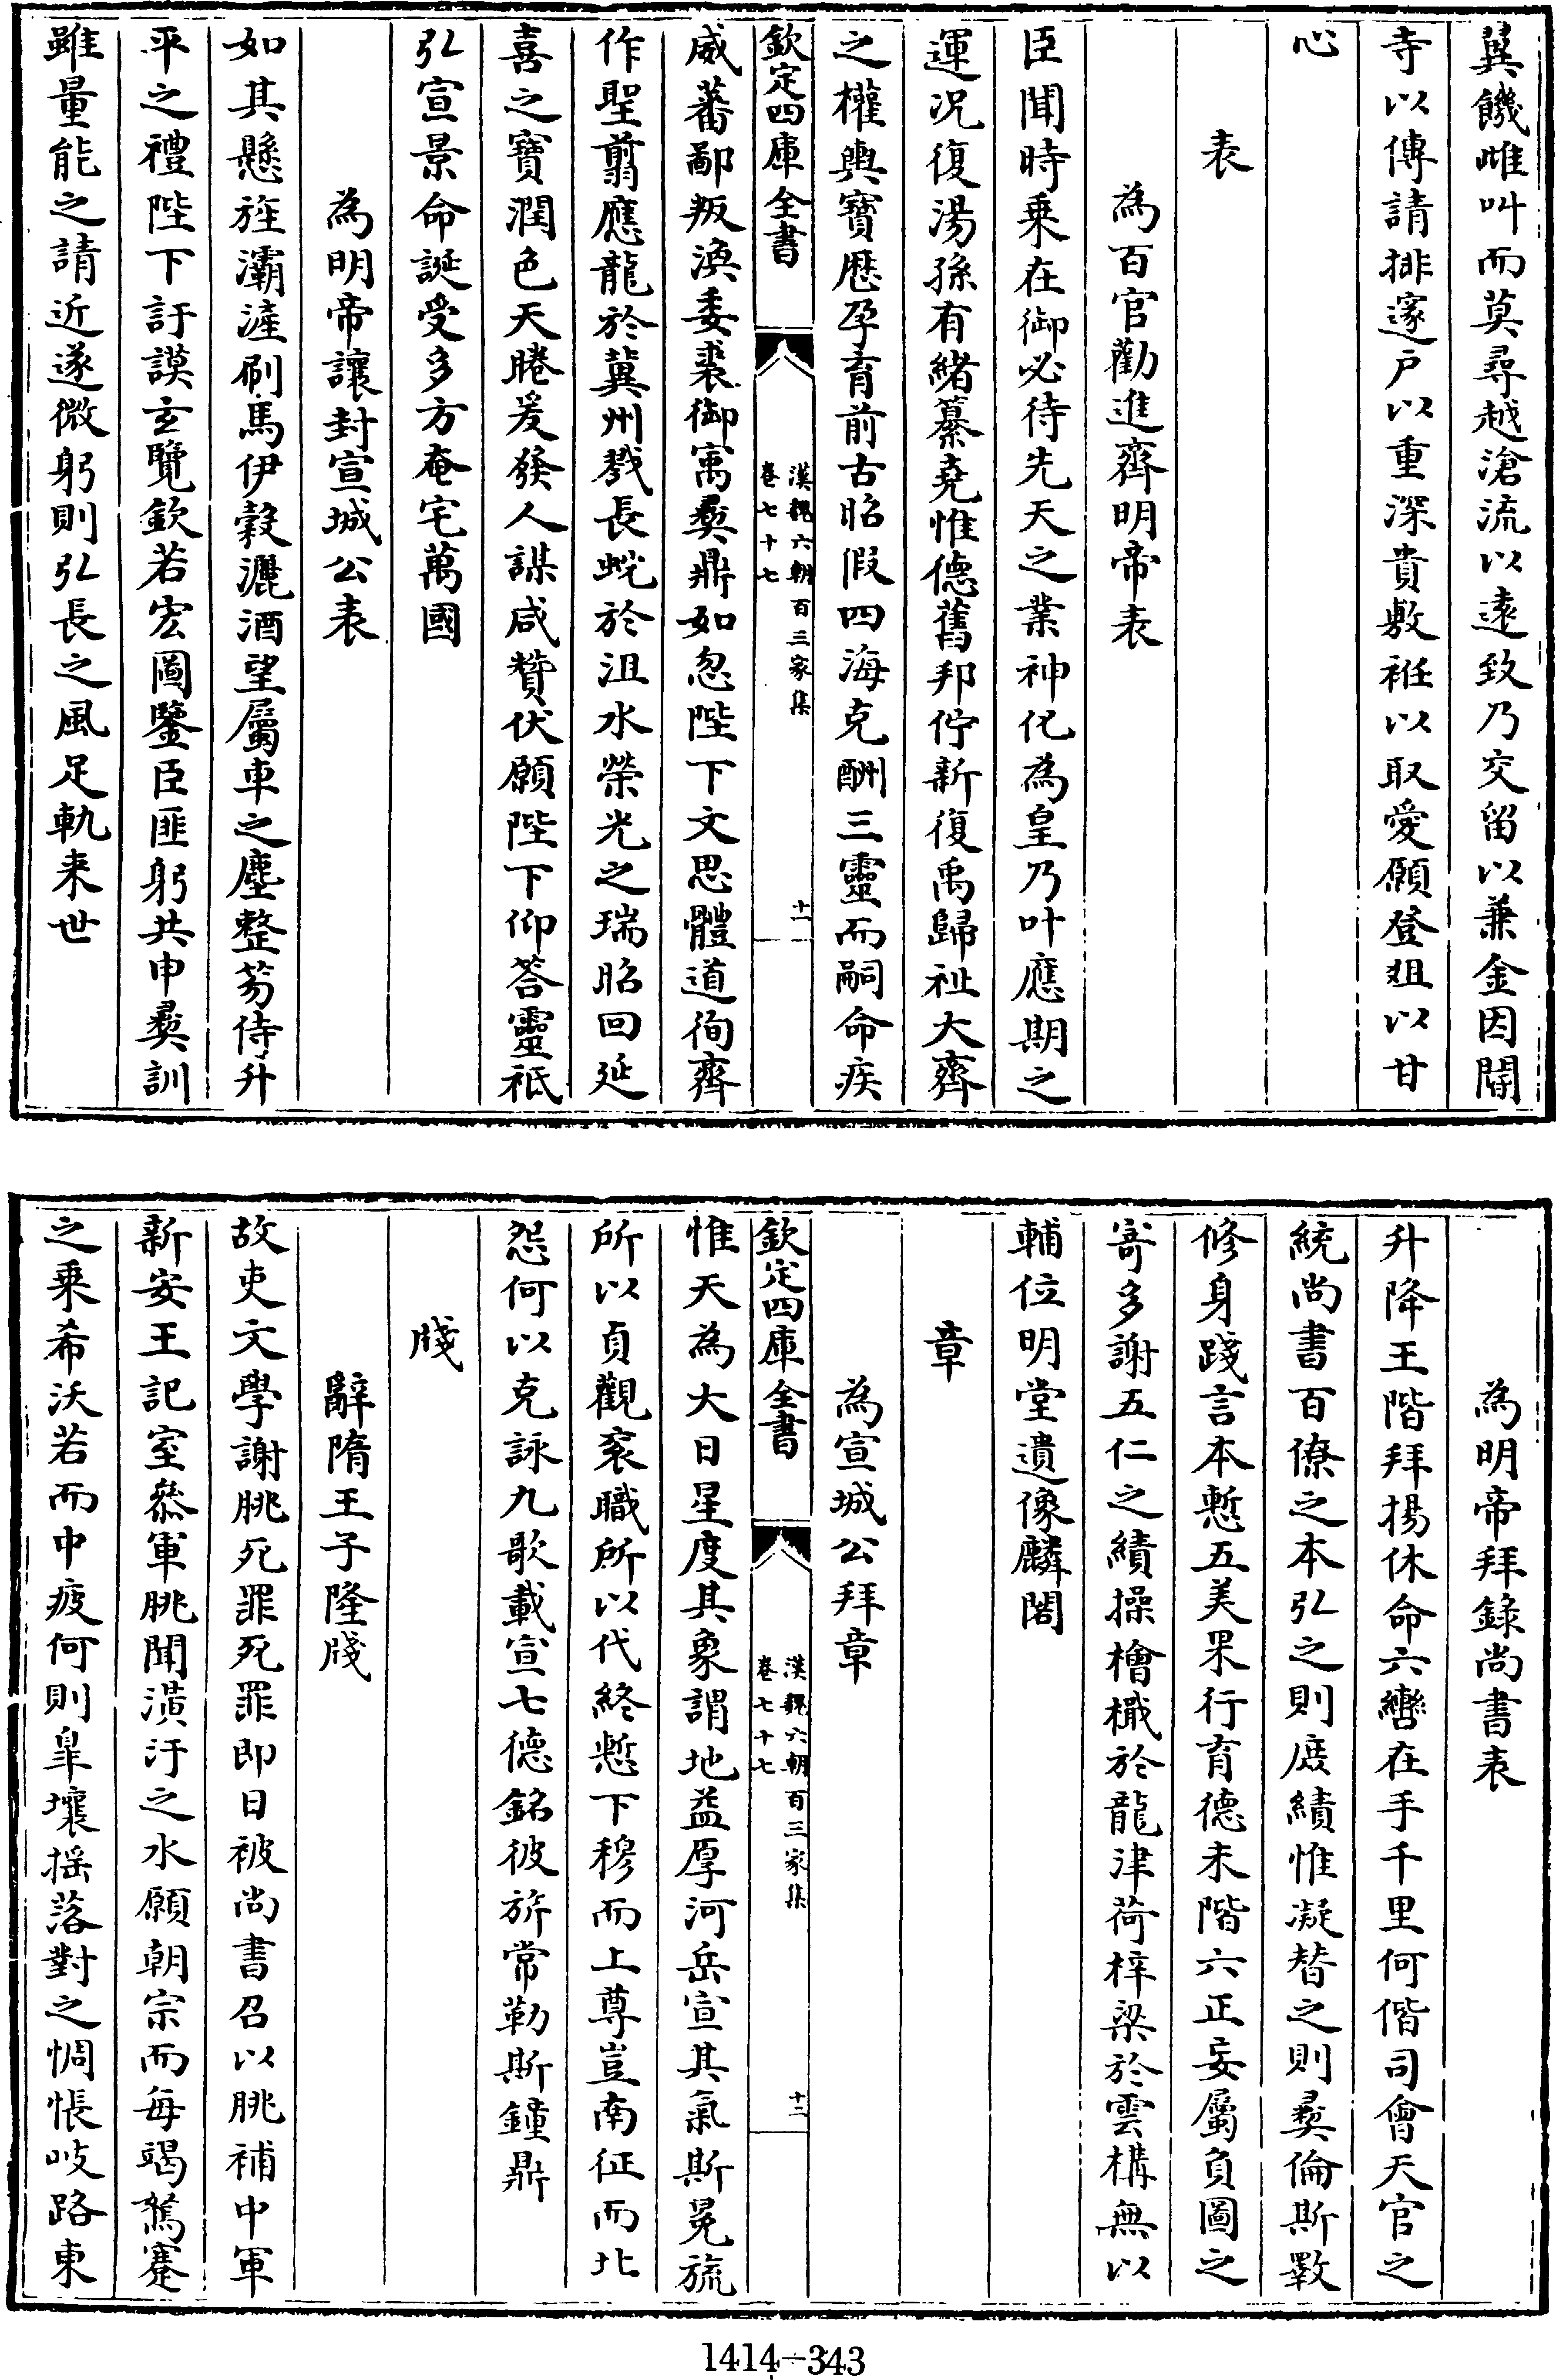 冀饑雌叫而莫尋越滄流以遠致乃交留以兼金因閽
寺以傳請排邃戶以重深貴敷袵以取愛願登俎以甘
心
表
為百官勸進齊明帝表
臣聞時乗在御必待先天之業神化為皇乃叶應期之
運况復湯孫有緒纂堯惟德舊邦佇新復禹歸祉大齊
之權輿寶厯孕育前古昭假四海克酬三靈而嗣命疾
欽定四庫全書
漢魏六朝百三家集
卷七十七
十一
威蕃鄙叛渙委裘御寓彜鼎如忽陛下文思體道徇齊
作聖翦應龍於冀州戮長蛇於沮水榮光之瑞昭回延
喜之寶潤色天睠爰發人謀咸贊伏願陛下仰答靈祇
弘宣景命誕受多方奄宅萬國
為明帝讓封宣城公表
如其懸旌灞滻刷馬伊穀灑酒望屬車之塵整笏侍升
平之禮陛下訏謨玄覽欽若宏圖鑒臣匪躬共申彜訓
雖量能之請近遂微躬則弘長之風足軌来世
為明帝拜錄尚書表
升降王階拜揚休命六轡在手千里何偕司會天官之
統尚書百僚之本弘之則庶績惟凝替之則彜倫斯斁
修身踐言本慙五美果行育德未階六正妄屬負圖之
寄多謝五仁之績操檜檝於龍津荷梓梁於雲構無以
輔位明堂遺像麟閣
章
為宣城公拜章
欽定四庫全書
漢魏六朝百三家集
卷七十七
十二
惟天為大日星度其象謂地益厚河岳宣其氣斯冕旒
所以貞觀衮職所以代終慙下穆而上尊豈南征而北
怨何以克詠九歌載宣七德銘彼旂常勒斯鐘鼎
牋
辭隋王子隆牋
故吏文學謝朓死罪死罪即日被尚書召以朓補中軍
新安王記室叅軍朓聞潢汙之水願朝宗而每竭駑蹇
之乗希沃若而中疲何則臯壤揺落對之惆悵岐路東
1414-343